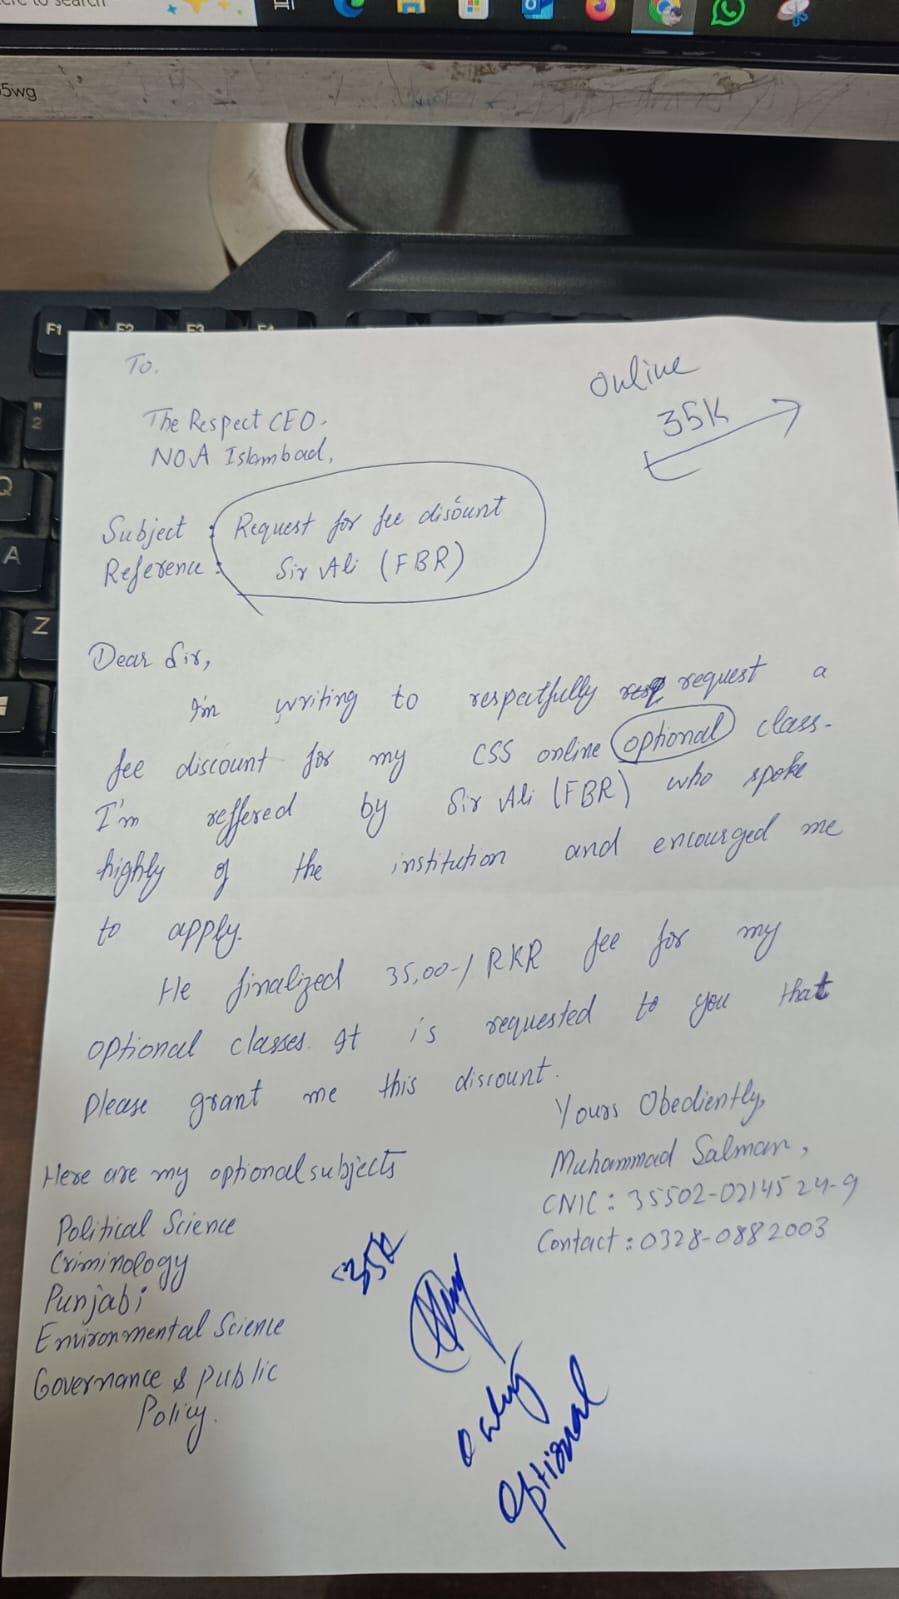 ere to search
5wg
F1
F2
F3
F4
2
Q
A
Z
To.
Online
35K
The Respect CEO.
NOA Islambad,
Subject : Request for fee disount
Reference : Sir Ali (FBR)
Dear Sir,
I'm writing to respectfully request a
fee discount for my CSS online optional class.
I'm reffered by Sir Ali (FBR) who spoke
highly of the institution and encourged me
to apply.
He finalized 35,00-/ RKR fee for my
optional classes. It is requested to you that
please grant me this discount.
Yours Obediently,
Muhammad Salman,
CNIC : 35502-0214524-9
Contact : 0328-0882003
Here are my optional subjects
Political Science
Criminology
Punjabi
Environmental Science
Governance & public
Policy.
35K
only
optional